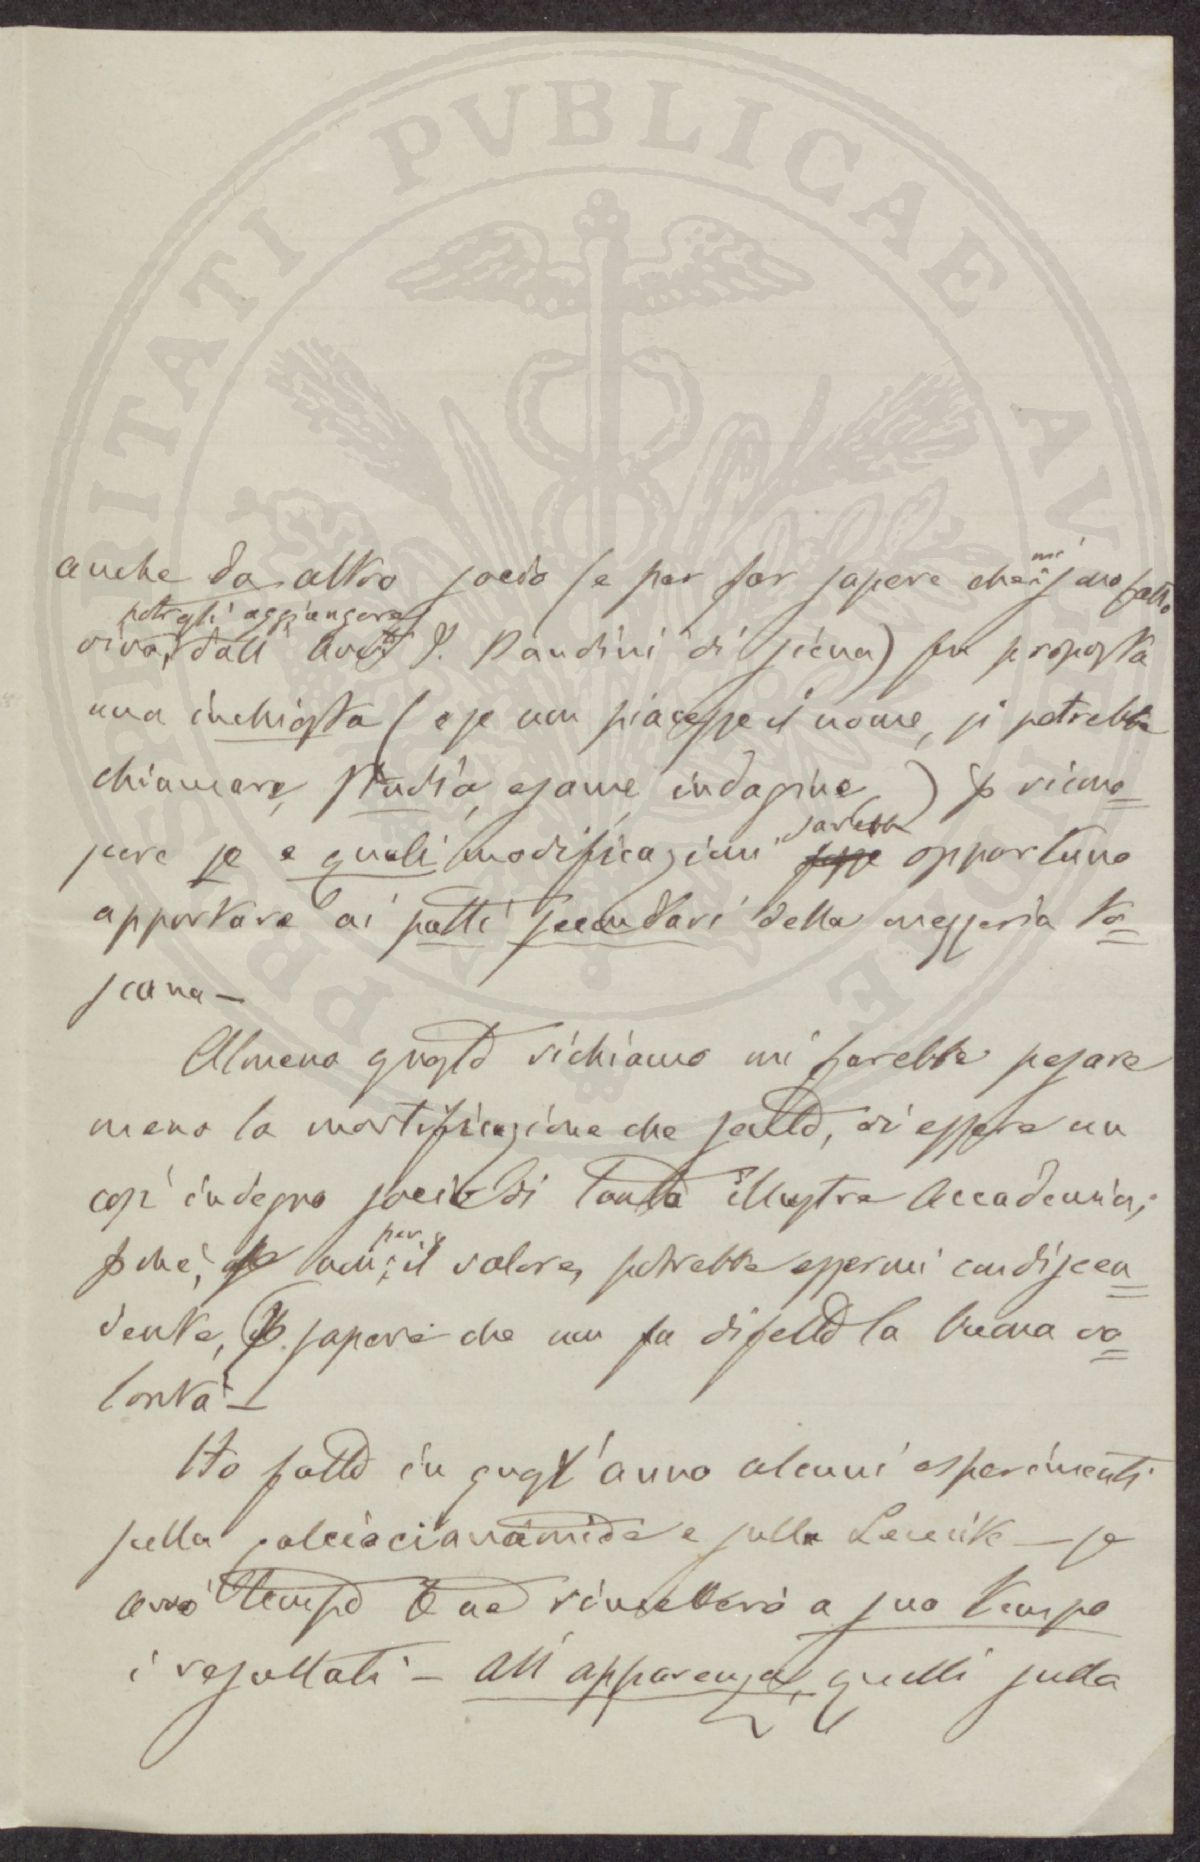 PROSPERITATI PVBLICAE AVGENDAE
anche da altro socio (e per far sapere che mi sono fatto
vivo, potresti aggiungere dall' Avv. P. Bandini di Siena) fu proposta
una inchiesta (e se non piacesse il nome, si potrebbe
chiamare, studio, esame, indagine) p ricono=
scere se e quali modificazioni sarebbe opportuno
apportare ai patti secondari della mezzeria to=
scana —
Almeno questo richiamo mi farebbe pesare
meno la mortificazione che sento, di essere un
così indegno socio di tanta illustre Accademia;
p che, non per il valore, potrebbe essermi condiscen=
dente, p. sapere che non fa difetto la buona vo=
lontà —
Ho fatto in quest'anno alcuni esperimenti
sulla calciocianamide e sulla Leucite — se
avrò tempo Le ne rimetterò a suo tempo
i resultati — All'apparenza, quelli sulla